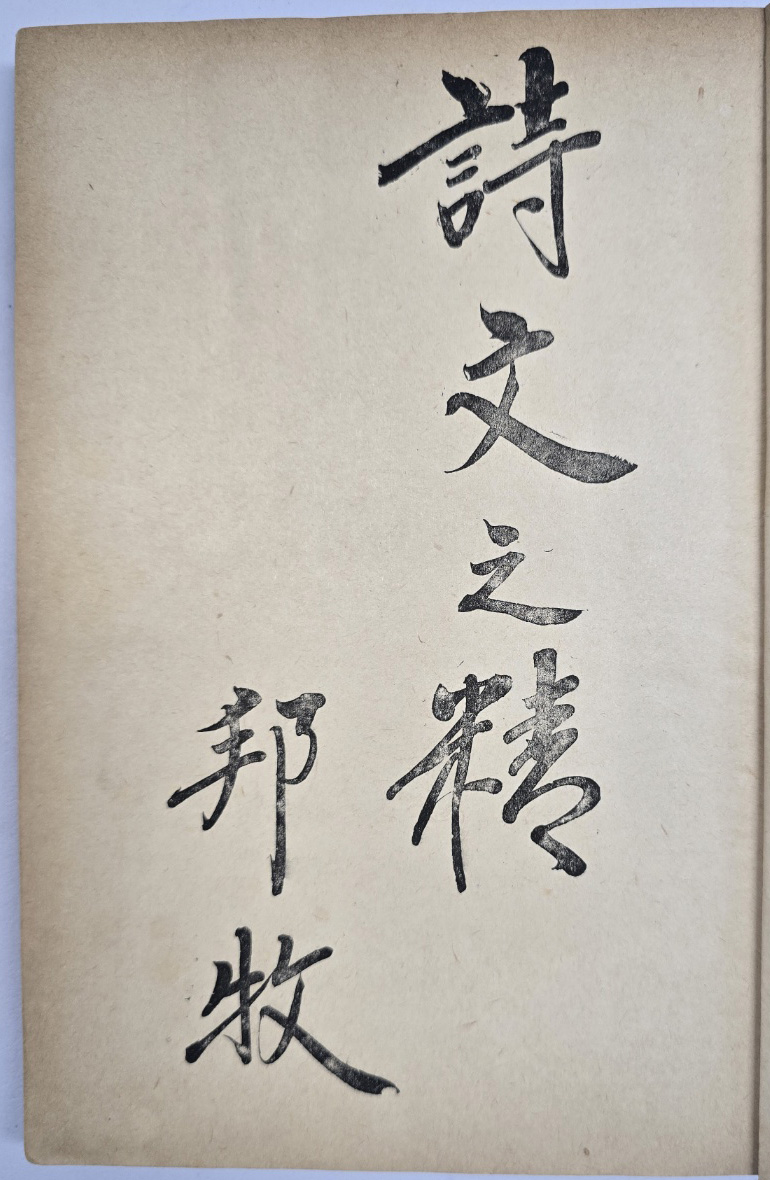 詩文之精
邦牧